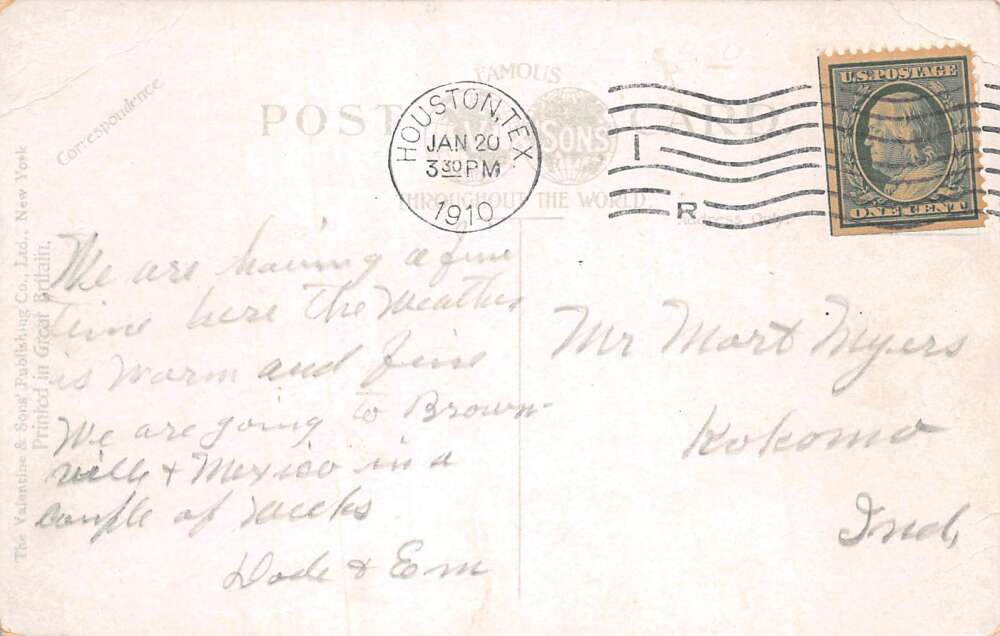 FAMOUS
POST CARD
SONS
THROUGHOUT THE WORLD
HOUSTON, TEX.
JAN 20
3 30 PM
1910
I
R
U.S. POSTAGE
ONE CENT
Correspondence.
Address Only.
The Valentine & Sons' Publishing Co., Ltd., New York
Printed in Great Britain.
We are having a fine
time here The Weather
is Warm and fine
We are going to Brown-
ville & Mexico in a
Couple of Weeks
Dode & Em
Mr Mort Myers
Kokomo
Ind,